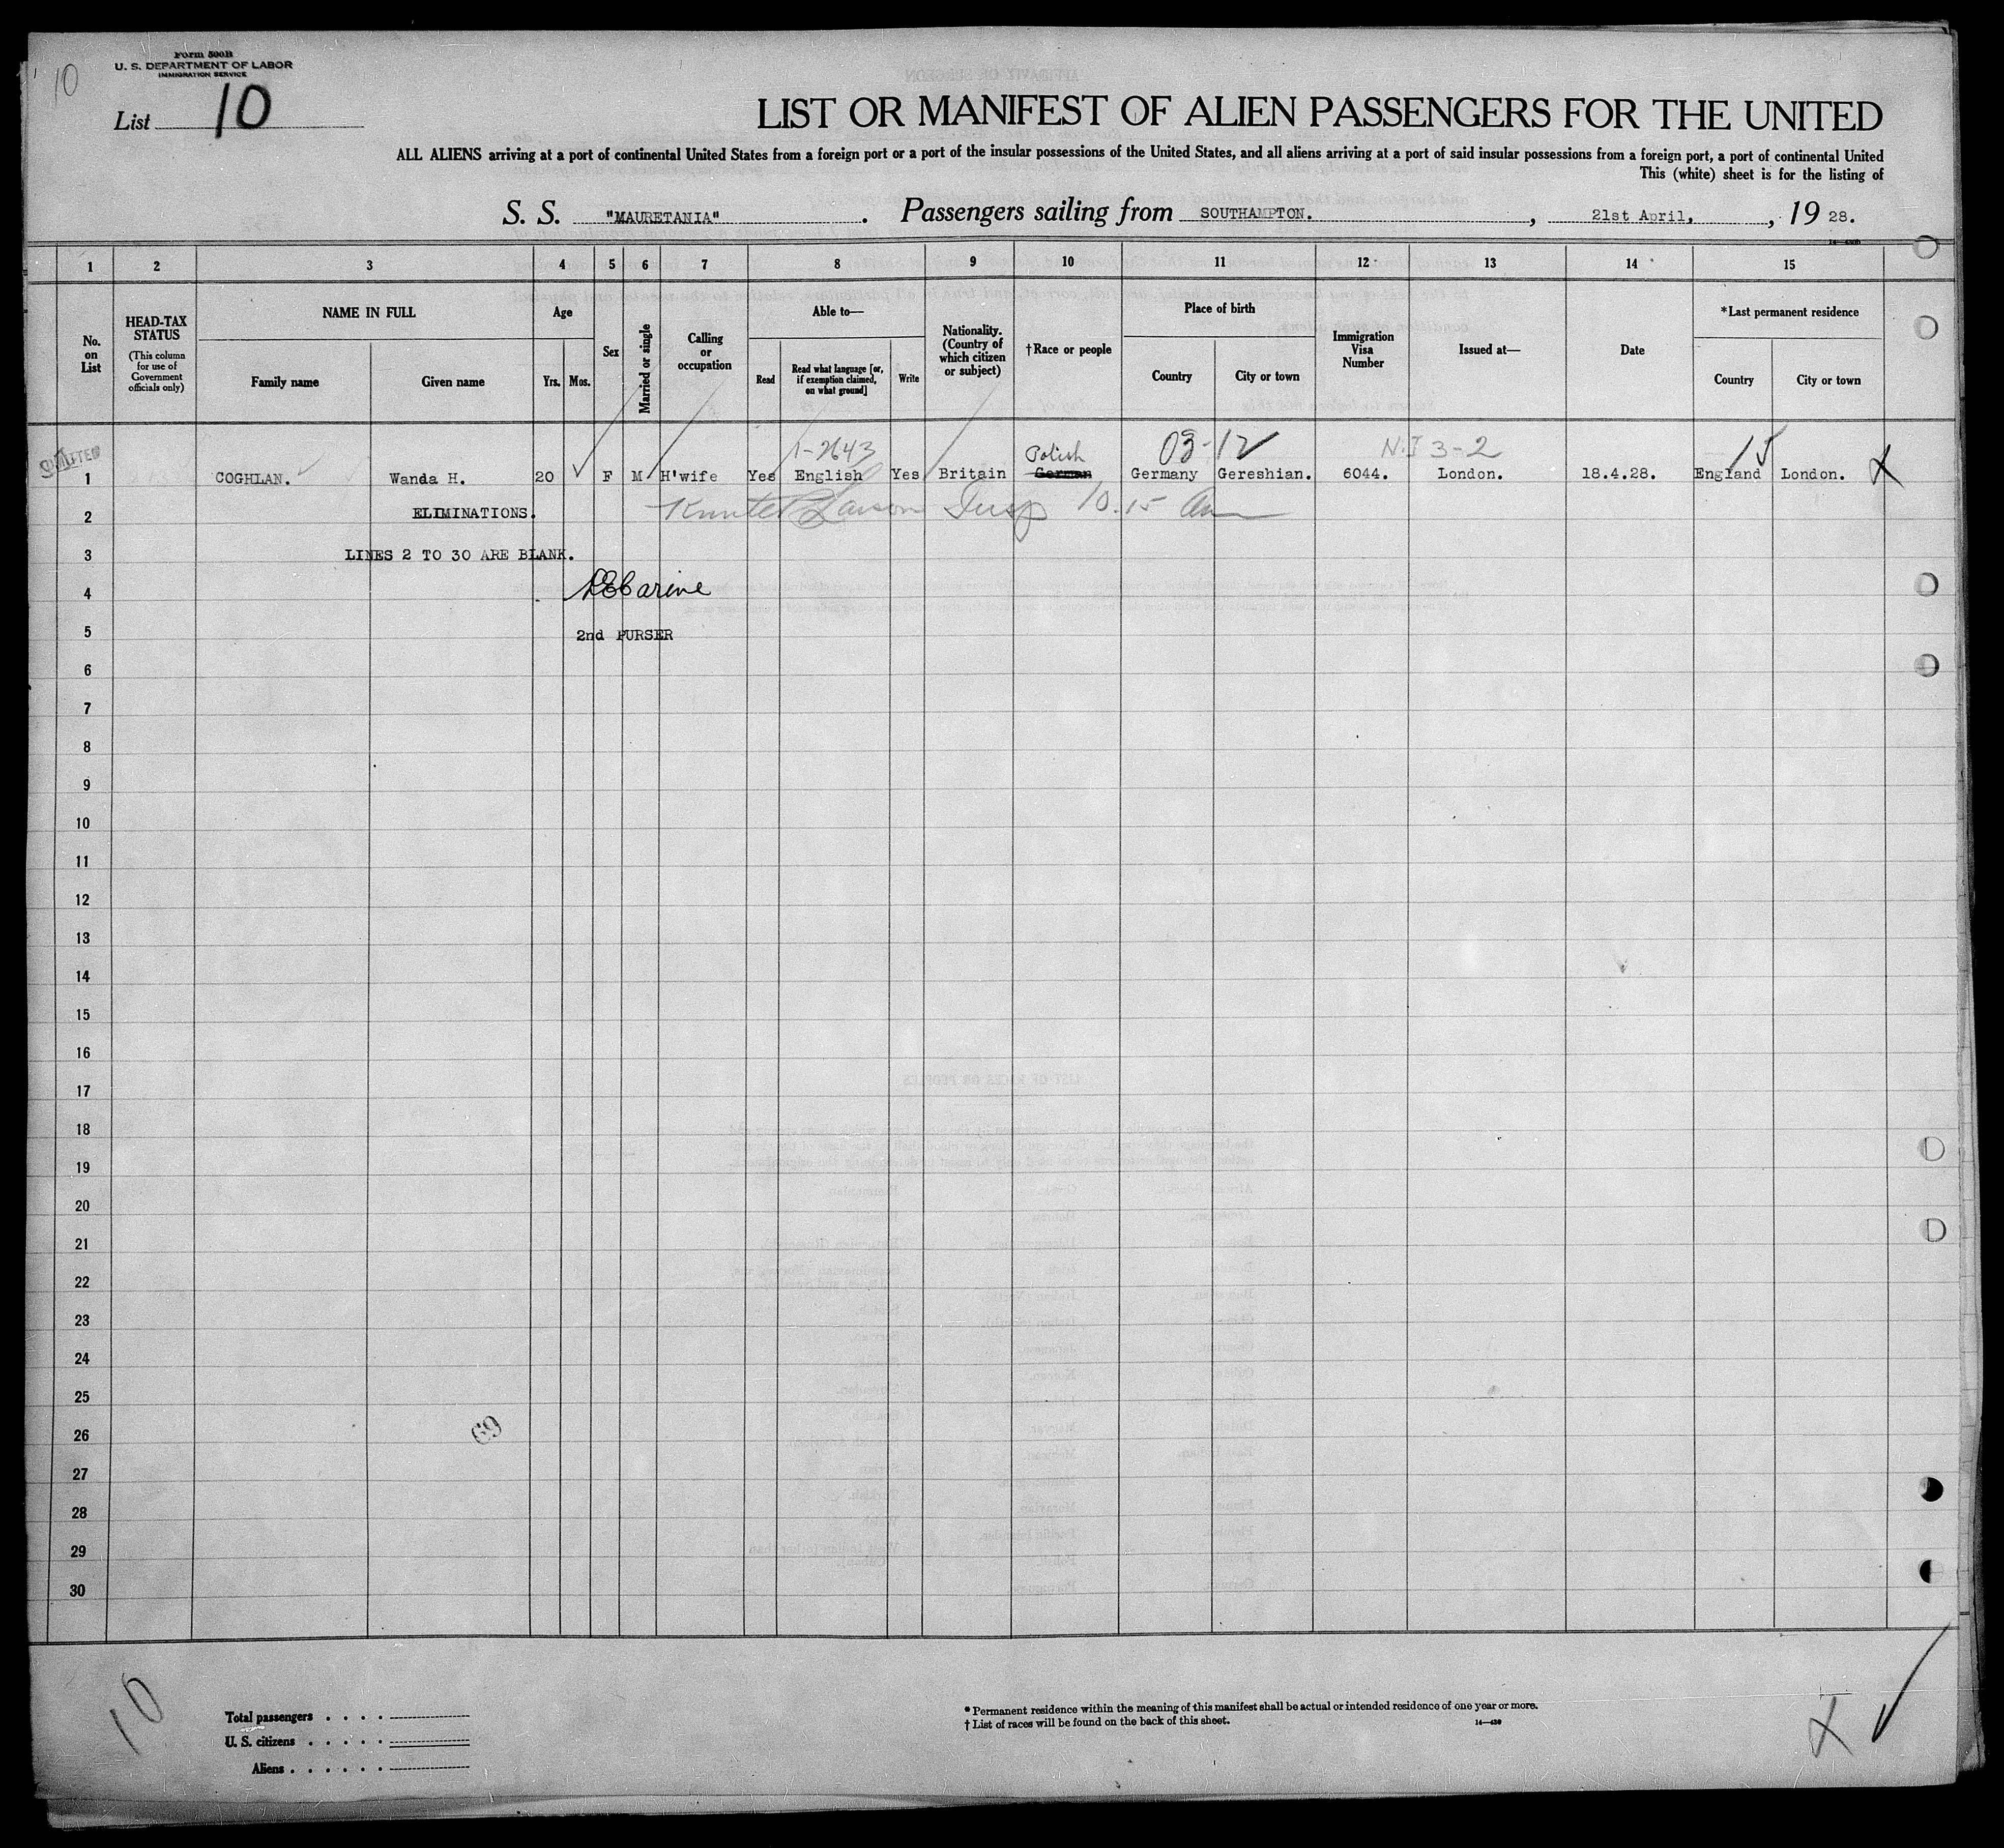 10
Form 500B
U. S. DEPARTMENT OF LABOR
IMMIGRATION SERVICE
List 10
LIST OR MANIFEST OF ALIEN PASSENGERS FOR THE UNITED
ALL ALIENS arriving at a port of continental United States from a foreign port or a port of the insular possessions of the United States, and all aliens arriving at a port of said insular possessions from a foreign port, a port of continental United
This (white) sheet is for the listing of
S. S. "MAURETANIA". Passengers sailing from SOUTHAMPTON., 21st April, , 19 28.
1 2 3 4 5 6 7 8 9 10 11 12 13 14 15
No. on List
HEAD-TAX STATUS
(This column for use of Government officials only)
NAME IN FULL
Family name
Given name
Age
Yrs.
Mos.
Sex
Married or single
Calling or occupation
Able to—
Read
Read what language [or, if exemption claimed, on what ground]
Write
Nationality. (Country of which citizen or subject)
†Race or people
Place of birth
Country
City or town
Immigration Visa Number
Issued at—
Date
*Last permanent residence
Country
City or town
1-2643 Polish 03-12 N.I 3-2 15
1 COGHLAN. Wanda H. 20 F M H'wife Yes English Yes Britain German Germany Gereshian. 6044. London. 18.4.28. England London. X
2 ELIMINATIONS. Larson Insp 10.15 Am
3 LINES 2 TO 30 ARE BLANK.
4
5 2nd PURSER
6
7
8
9
10
11
12
13
14
15
16
17
18
19
20
21
22
23
24
25
26
69
27
28
29
30
10
Total passengers . . . .
U. S. citizens . . . . .
Aliens . . . . . .
* Permanent residence within the meaning of this manifest shall be actual or intended residence of one year or more.
† List of races will be found on the back of this sheet.
14—430
X